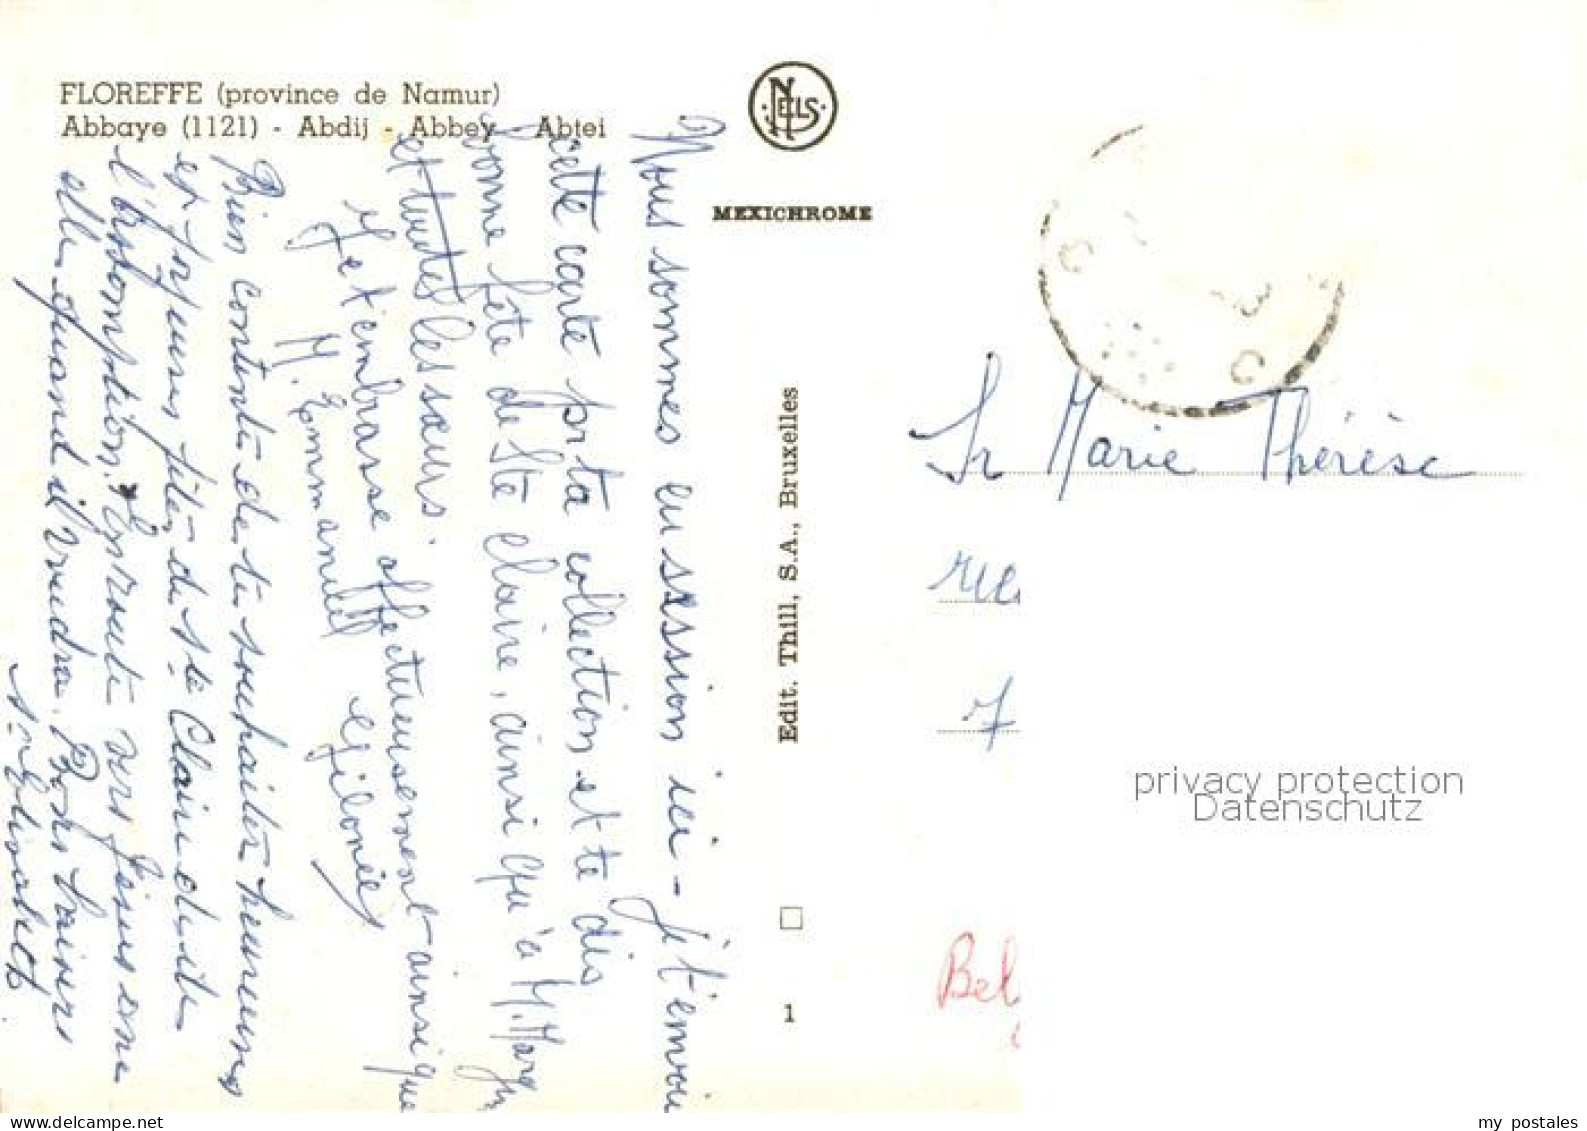 FLOREFFE (province de Namur)
Abbaye (1121) - Abdij - Abbey - Abtei
NELS
MEXICHROME
Edit. Thill, S.A., Bruxelles
1
Nous sommes en session ici - j't'envoie
cette carte pr ta collection et te dis
bonne fête de Ste Claire, ainsi qu'à M. Marg
et toutes les sœurs.
Je t'embrasse affectueusement ainsi que
M. Emmanuel
Bien contente de te souhaiter heureuse
et joyeuse fête de Ste Claire et de
l'Assomption. En route vers Jésus
elle quand il voudra. Bons baisers
Sr Elisabeth
Sr Marie Thérèse
rue
7
Bel
privacy protection
Datenschutz
www.delcampe.net
my_postales